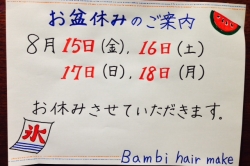 お盆休みのご案内
8月15日(金), 16日(土)
17日(日), 18日(月)
お休みさせていただきます。
氷
Bambi hair make